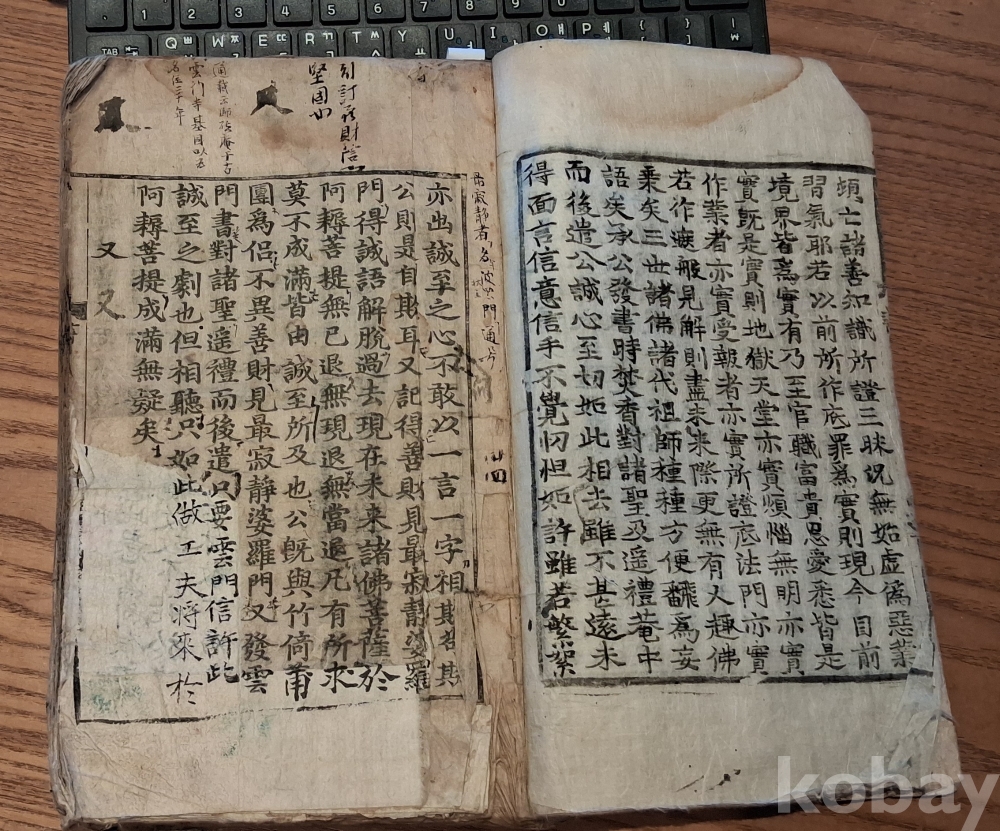 Q ㅃ W ㅉ E ㄸ R ㄲ T ㅆ Y U I O P
TAB
頻亡諸善知識所證三昧況無如虛爲惡業
習氣耶若以前所作底罪爲實則現今目前
境界皆爲實有乃至官職富貴恩愛悉皆是
實旣是實則地獄天堂亦實煩惱無明亦實
作業者亦實受報者亦實所證底法門亦實
若作般見解則盡未來際更無有人趣佛
乘矣三世諸佛諸代祖師種種方便飜爲妄
語矣承公發書時焚香對諸聖及遙禮菴中
而後遣公誠心至切如此相去雖不甚遠未
得面言信意信手不覺忉怛如許雖若繁絮
最寂靜者名門
堅固
亦出誠至之心不敢以一言一字相欺若欺
公則是自欺耳又記得善財見最寂靜婆羅
門得誠語解脫過去現在未來諸佛菩薩於
阿耨菩提無已退無現退無當退凡有所求
莫不成滿皆由誠至所及也公旣與竹倚蒲
團爲侶不異善財見最寂靜婆羅門又發雲
門書對諸聖遙禮而後遣只要雲門信許此
誠至之劇也但相聽只如此做工夫將來於
阿耨菩提成滿無疑矣
又又
kobay